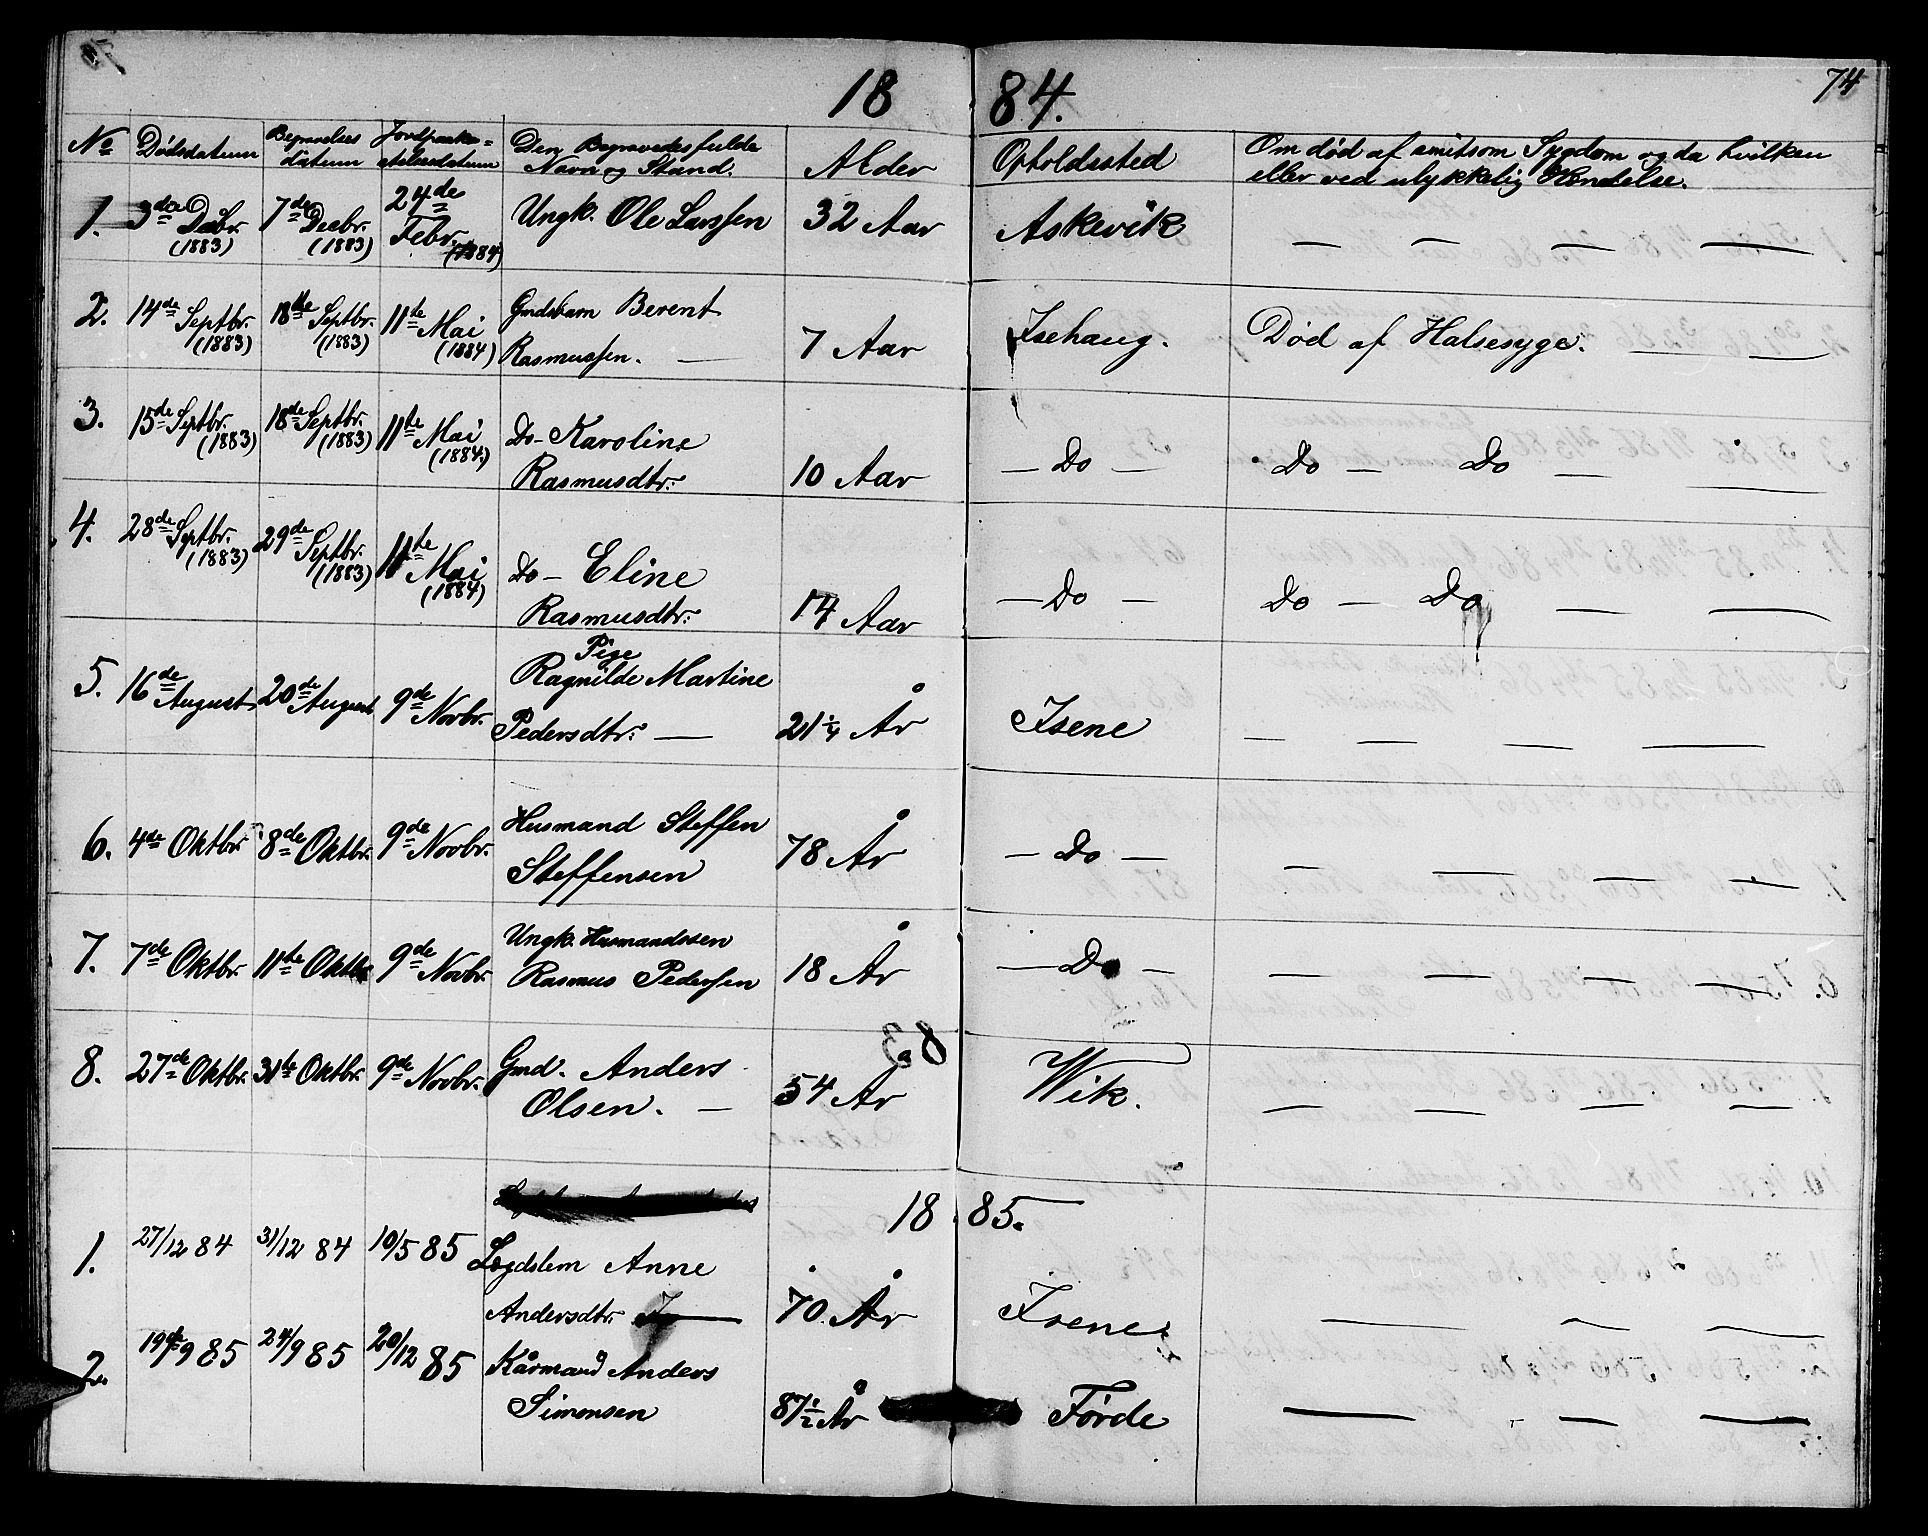 18 84. 74
No Dødsdatum Begravelses datum Jordpaakastelsesdatum Den Begravedes fulde Navn og Stand. Alder Opholdssted Om død af smitsom Sygdom og da hvilken eller ved ulykkelig Hændelse.
1. 3de Decbr. (1883) 7de Decbr. (1883) 24de Febr. (1884) Ungk. Ole Larssen 32 Aar Askevik — — — —
2. 14de Septbr. (1883) 18de Septbr. (1883) 11te Mai (1884) Gmdsbarn Berent Rasmussen. — 7 Aar Isehaug. Død af Halsesyge. — —
3. 15de Septbr. (1883) 18de Septbr. (1883) 11te Mai (1884.) Do - Karoline Rasmusdtr: 10 Aar — Do — Do — Do — —
4. 28de Septbr. (1883) 29de Septbr. (1883) 11te Mai (1884) Do - Eline Rasmusdtr: 14 Aar — Do — Do — Do — —
5. 16de August 20de August 9de Novbr. Pige Ragnilde Martine Pedersdtr: — 21 1/4 År Isene — — — —
6. 4de Oktbr. 8de Oktbr. 9de Novbr. Husmand Steffen Steffensen 78 År — Do — — — — —
7. 7de Oktbr. 11te Oktbr. 9de Novbr. Ungk. Husmandssøn Rasmus Pedersen 18 År — Do — — — — —
8. 27de Oktbr. 31te Oktbr. 9de Novbr. Gmd. Anders Olsen. — 54 År Wik. — — — —
18 85.
1. 27/12 84 31/12 84 10/5 85 Lægdslem Anne Andersdtr. 70 År Isene — — —
2. 19de/9 85 24/9 85 20/12 85 Kårmand Anders Simonsen 87 1/2 År Førde — — —